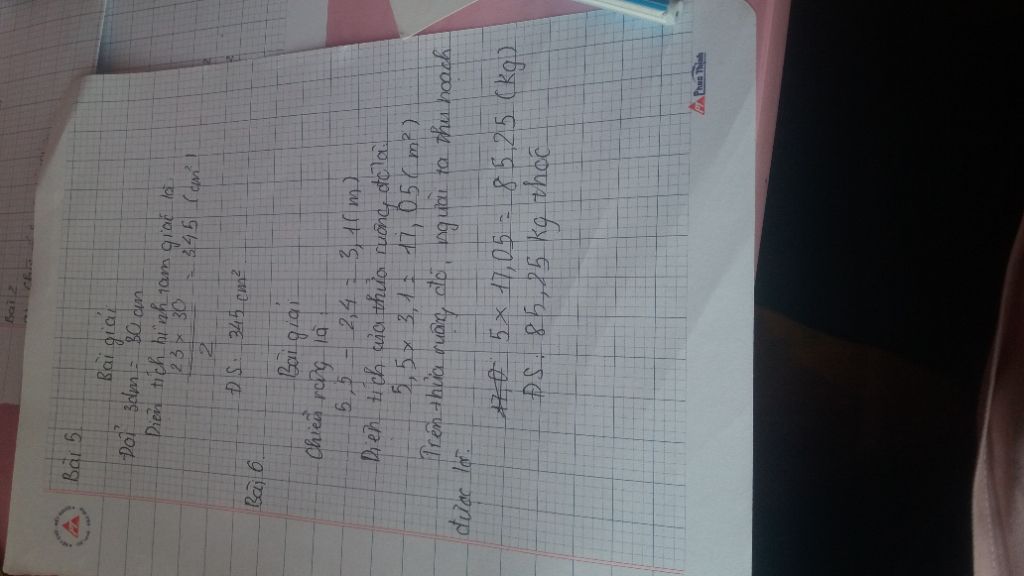 Bài 5
Bài giải
Đổi 3dm = 30 cm
Diện tích hình tam giác là
23 × 30
2
= 345 (cm²)
ĐS: 345 cm²
Bài 6
Bài giải
Chiều rộng là:
5,5 - 2,4 = 3,1 (m)
Diện tích của thửa ruộng đó là
5,5 × 3,1 = 17,05 (m²)
Trên thửa ruộng đó, người ta thu hoạch
được là:
5 × 17,05 = 85,25 (kg)
ĐS: 85,25 kg thóc